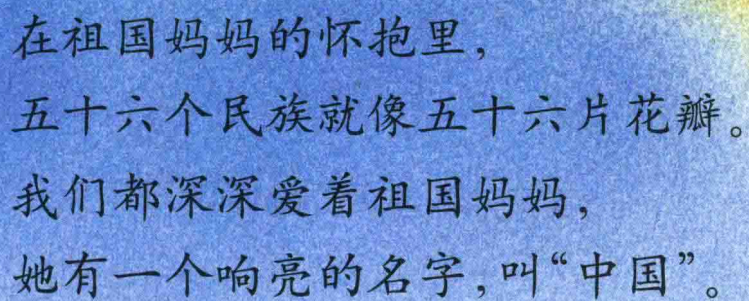 在祖国妈妈的怀抱里，
五十六个民族就像五十六片花瓣。
我们都深深爱着祖国妈妈，
她有一个响亮的名字，叫“中国”。